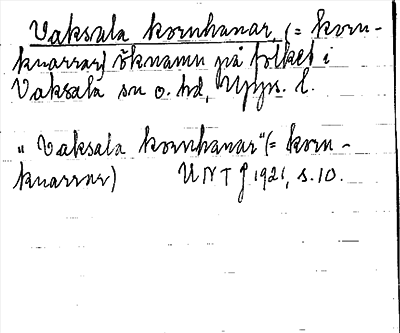 Vaksala kornhanar (= korn-
knarrar) öknamn på folket i
Vaksala sn o. hd, Upps. l.
"Vaksala kornhanar" (= korn-
knarrar) UNT J 1921, s. 10.